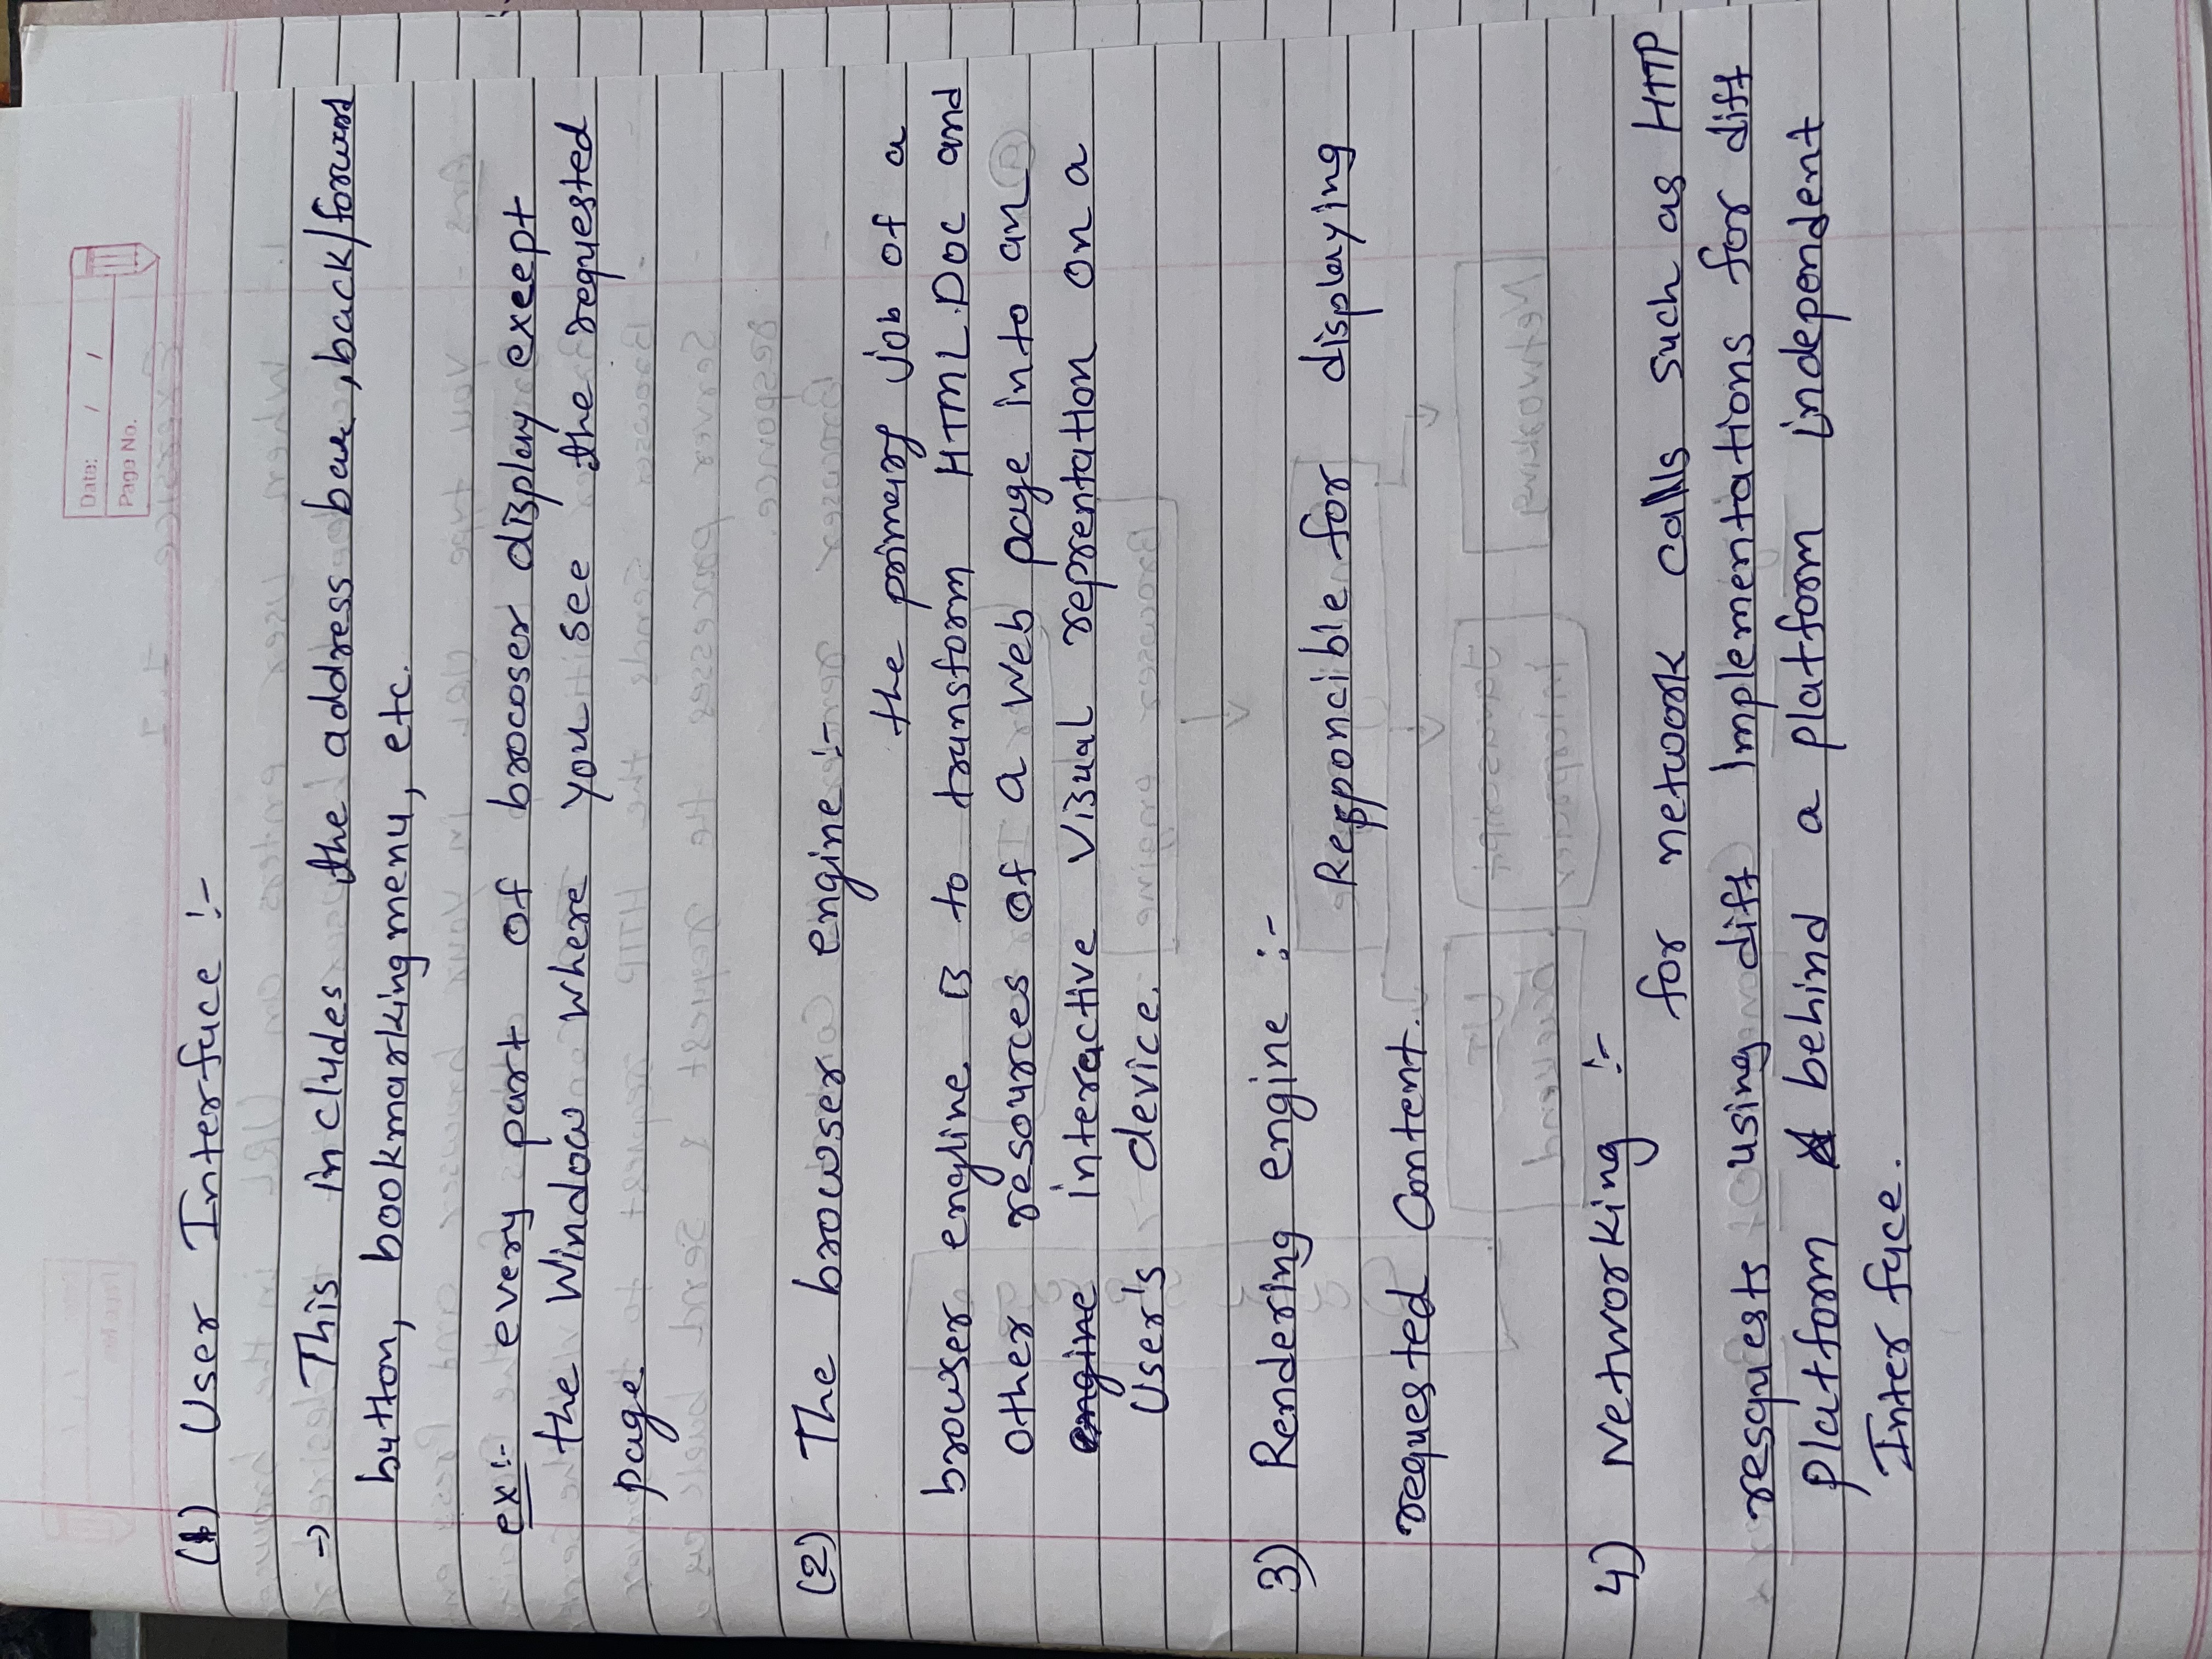 Date: / /
Page No.
(1) User Interface :-
→ This includes the address bar, back/forward
button, bookmarking menu, etc.
ex :- every part of brocoser display except
the Window where you see the requested
page
(2) The browser engine :-
the primary job of a
browser engline is to transform HTML.Doc and
other resources of a Web page into an
engine interactive visual reprentation on a
User's device.
3) Rendering engine :-
Responcible for displaying
requested Content.
4) Networking :-
for netwoork calls such as HTTP
resquests using diff Implementations for diff
platform behind a platform independent
Interface.